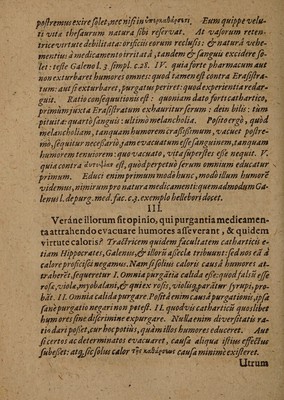 postremus exire solet, nec nisi in ὑπερκαθάρσει. Eum quippe velu-
ti vitæ thesaurum natura sibi reservat. At vasorum reten-
trice virtute debilitata: orificiis eorum reclusis: & naturâ vehe-
mentius à medicamento irritatâ, tandem & sanguis excidere so-
let: teste Galeno l. 3. simpl. c. 28. IV. quia forte pharmacum aut
non exturbaret humores omnes: quod tamen est contra Erasistra-
tum: aut si exturbaret, purgatus periret: quod experientia redar-
guit. Ratio consequutionis est: quoniam dato forti cathartico,
primùm juxta Erasistratum exhauritur serum: dein bilis: tum
pituita: quartò sanguis: ultimò melancholia. Posito ergò, quòd
melancholiam, tanquam humorem crassissimum, vacuet postre-
mò, sequitur necessariò, jam evacuatum esse sanguinem, tanquam
humorem tenuiorem: quo vacuato, vita superstes esse nequit. V.
quia contra est, quòd perpetuò serum omnium educatur
primum. Educi enim primum modò hunc, modò illum humorē
videmus, nimirum pro natura medicamenti: quemadmodum Ga-
lenus l. de purg. med. fac. c. 3. exemplo hellebori docet.
III.
Veráne illorum sit opinio, qui purgantia medicamen-
ta attrahendo evacuare humores asseverant, & quidem
virtute caloris? Tractricem quidem facultatem catharticis e-
tiam Hippocrates, Galenus, & illorū asecla tribunt: sed nos eā à
calore proficisci negamus. Nam si solius caloris causâ humores at-
traherēt, sequeretur I. Omnia purgātia calida esse: quod falsū esse
rosa, viola, myobalani, & qui ex rosis, violisq; parātur syrupi, pro-
bāt. II. Omnia calida purgare. Positâ enim causâ purgationis, ipsa
sanè purgatio negari non potest. II. quodvis catharticū quoslibet
humores sine discrimine expurgare. Nulla enim diversitatis ra-
tio dari posset, cur hoc potius, quàm illos humores educeret. Aut
si certos ac determinatos evacuaret, causa aliqua istius effectus
subesset: atq; sic solus calor τῆς καθάρσεως causa minimè existeret.
Utrum